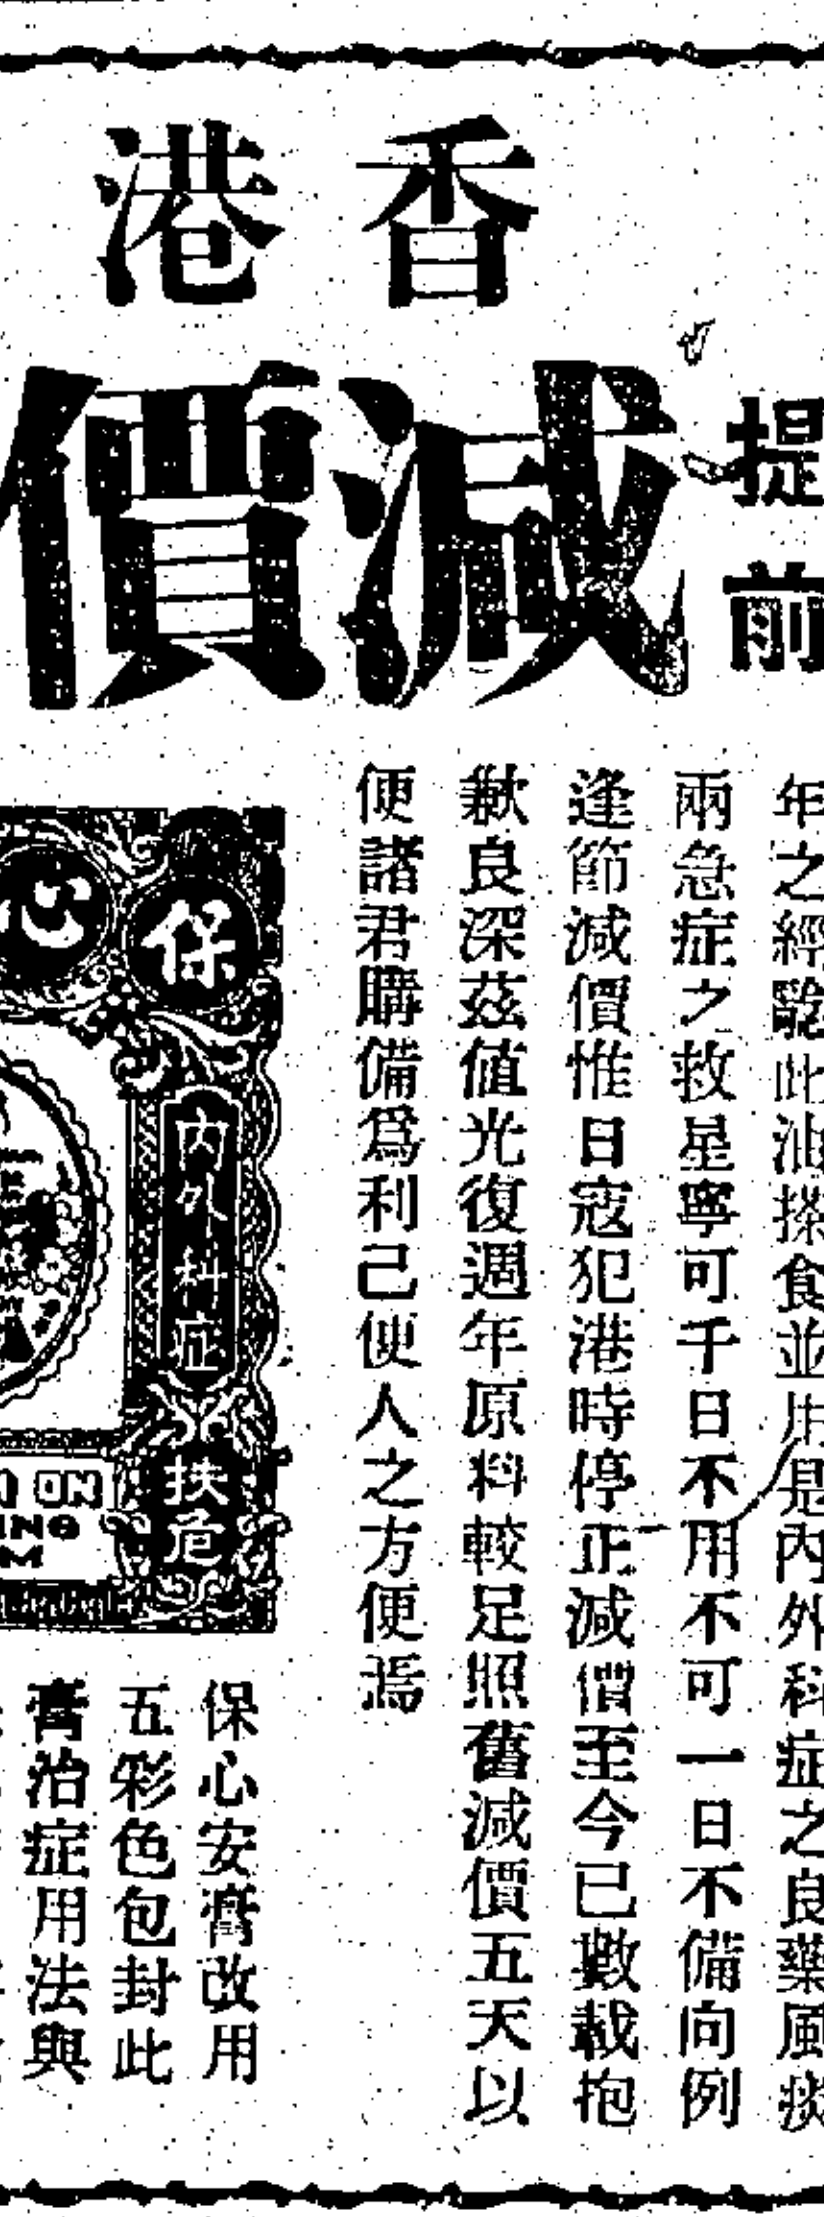 香港
提前
減價
年之經驗此油搽食並用是內外科症之良藥風痰
兩急症之救星寧可千日不用不可一日不備向例
逢節減價惟日寇犯港時停正減價至今已數載抱
歉良深茲值光復週年原料較足照舊減價五天以
便諸君購備爲利己便人之方便焉
保心
內外科症
扶危
ON
保心安膏改用
五彩色包封此
膏治症用法與